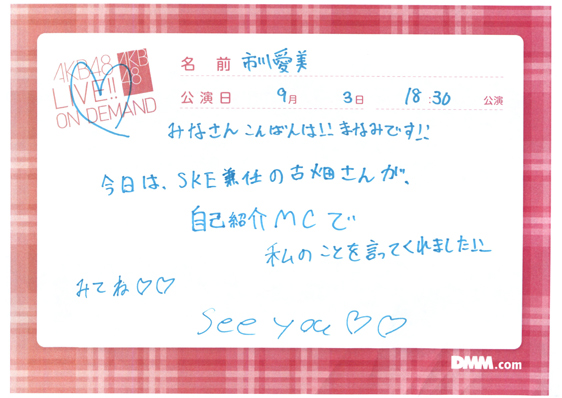 AKB48
LIVE!!
ON DEMAND
AKB
48
名 前 市川愛美
公演日 9月 3日 18:30 公演
みなさんこんばんは!! まなみです!!
今日は、SKE兼任の古畑さんが、
自己紹介MCで
私のことを言ってくれました!!
みてね♡♡
See you♡♡
DMM.com